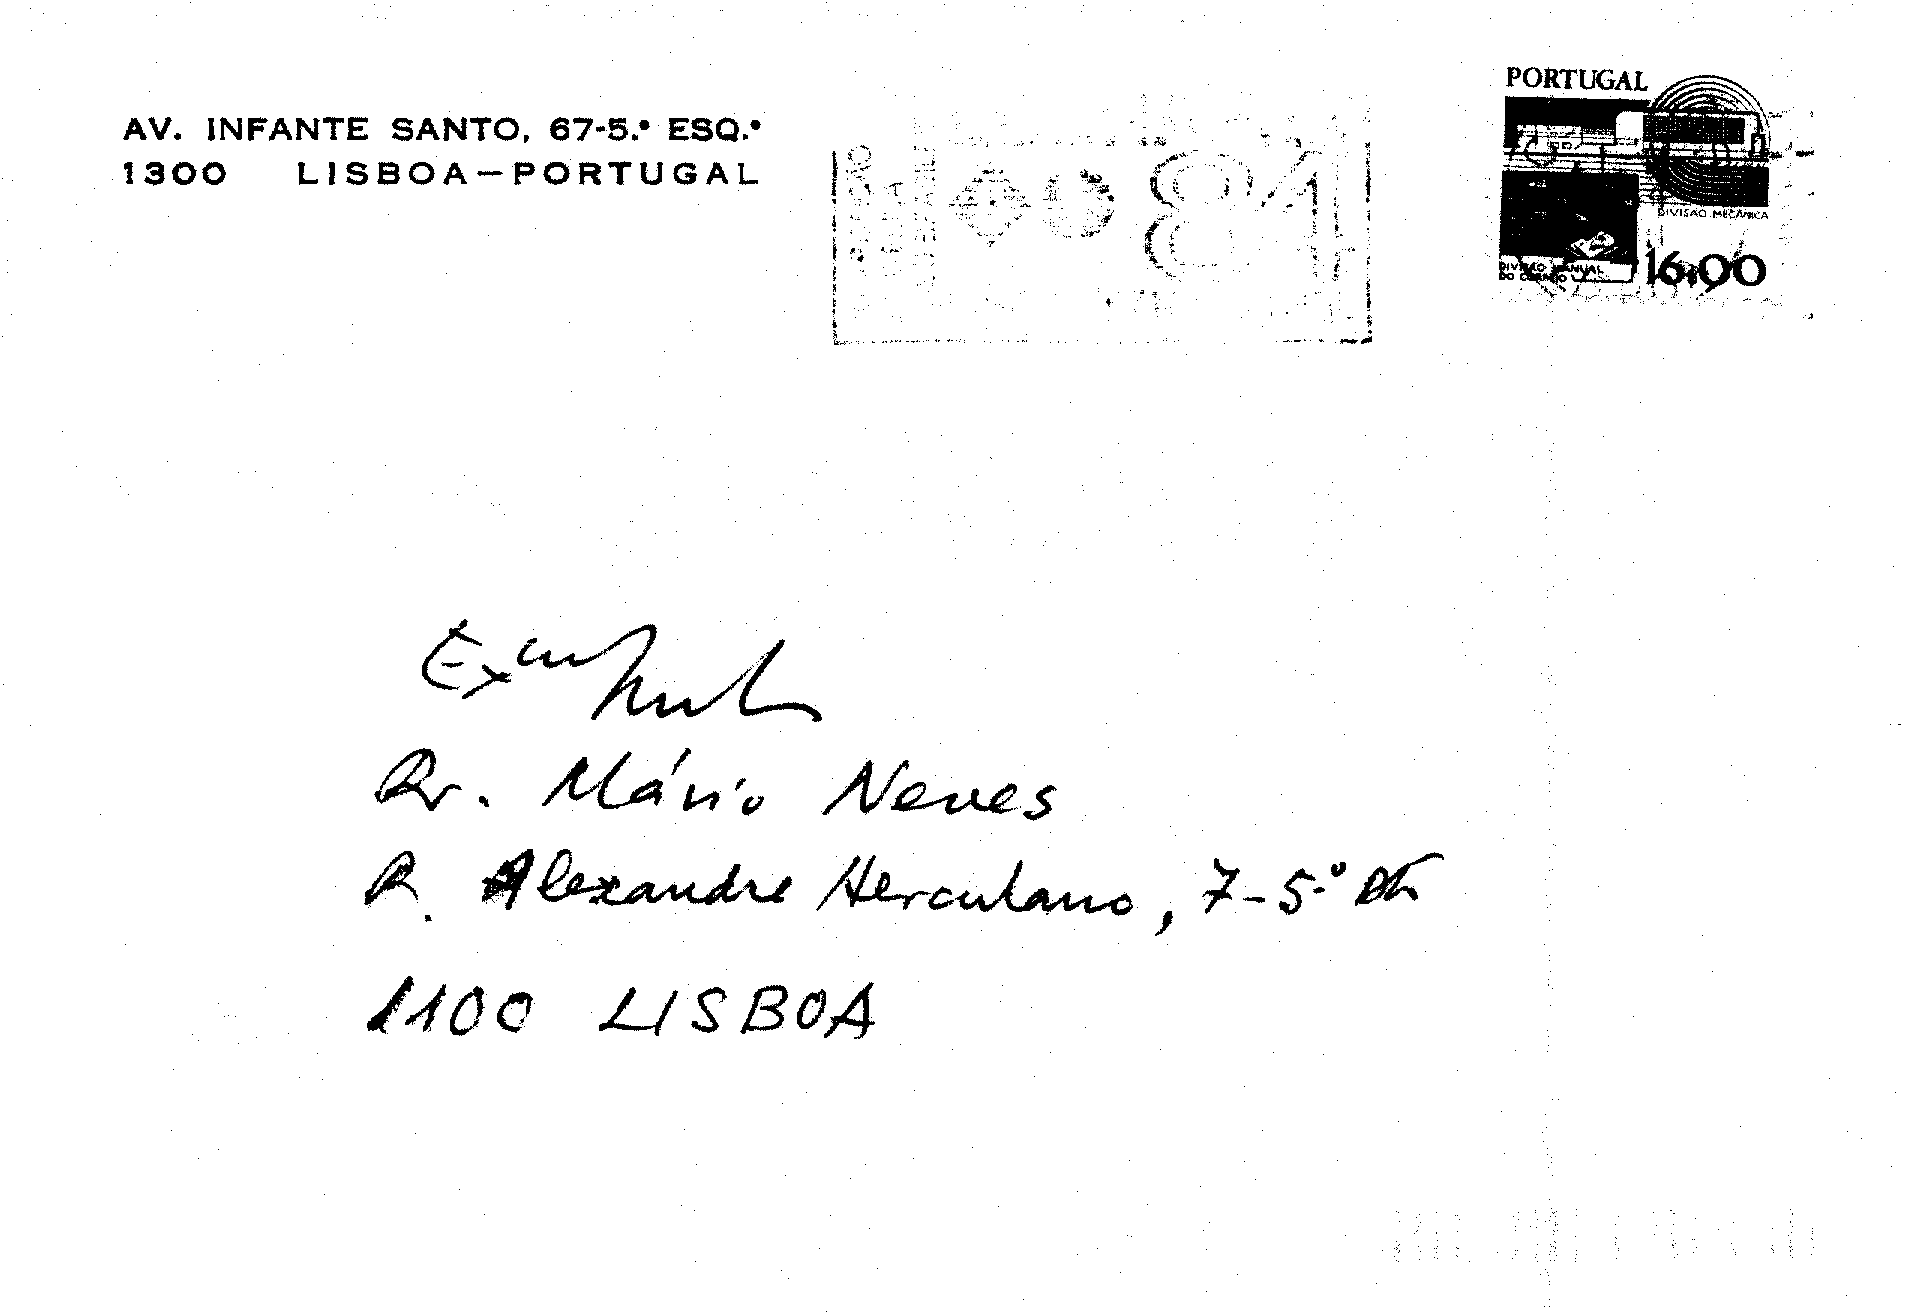 AV. INFANTE SANTO, 67-5.º ESQ.º
1300 LISBOA-PORTUGAL
81
PORTUGAL
DIVISÃO MECÂNICA
DIVISÃO MANUAL
DO CORREIO
16.00
Excm
Dr. Mário Neves
R. Alexandre Herculano, 7-5.º Dt
1100 LISBOA